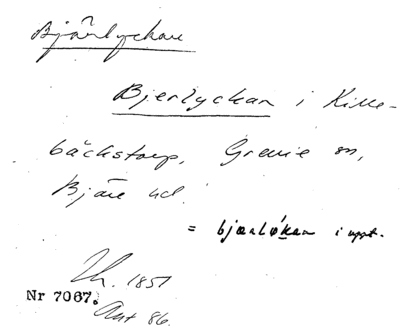 Bjärlyckan
Bjerlyckan i Kille-
bäckstorp, Grevie sn,
Bjäre hd.
= bjærlykan i uppt.
Lh. 1851
Nr 7067.
Ant 86.